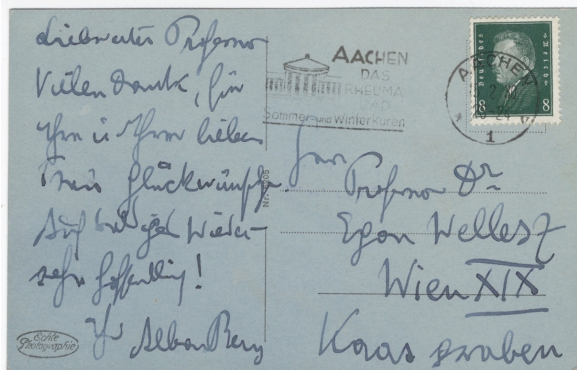 Liebwerter Professor
Vielen Dank, für
Ihre u. Ihrer lieben
Frau Glückwünsche.
Auf baldiges Wieder-
sehn hoffentlich!
Ihr Alban Berg
Echte
Photographie
AACHEN
DAS
RHEUMA
BAD
Sommer- und Winterkuren
Deutsches Reich
8 8
AACHEN
1
Herr
Professor Dr.
Egon Wellesz
Wien XIX
Kaasgraben